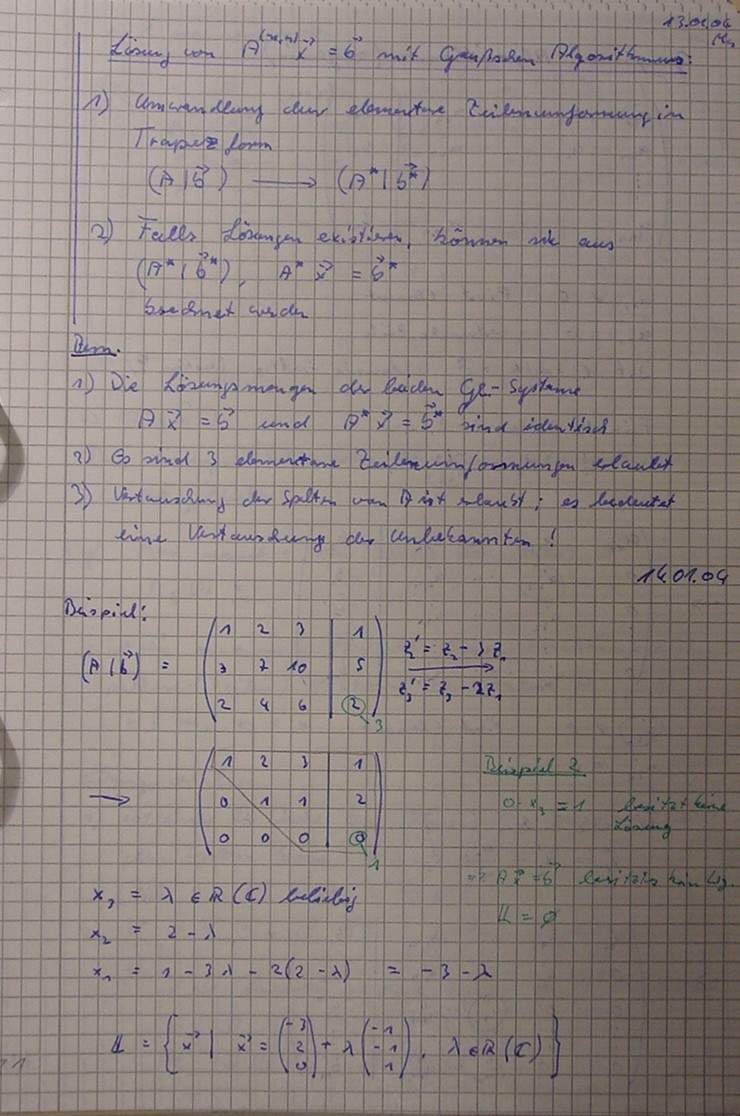 13.01.04
Lösung von A^(m,n) x⃗ = b⃗ mit Gaußschen Algorithmus:
1) Umwandlung durch elementare Zeilenumformung in
Trapezform
(A | b⃗) → (A* | b⃗*)
2) Falls Lösungen existieren, können sie aus
(A* | b⃗*), A* x⃗ = b⃗*
berechnet werden
Bem.
1) Die Lösungsmengen der beiden Gl.-Systeme
A x⃗ = b⃗ und A* x⃗ = b⃗* sind identisch
2) Es sind 3 elementare Zeilenumformungen erlaubt
3) Vertauschung der Spalten von A ist erlaubt; es bedeutet
eine Vertauschung der Unbekannten!
14.01.04
Beispiel:
(A | b⃗) =
1 2 3 | 1
3 7 10 | 5
2 4 6 | 2
3
z₂' = z₂ - 3 z₁
z₃' = z₃ - 2z₁
→
1 2 3 | 1
0 1 1 | 2
0 0 0 | 0
1
Beispiel 2
0 · x₃ = 1 besitzt keine
Lösung
=> A x⃗ = b⃗ besitzt kein Lsg.
𝕃 = ∅
x₃ = λ ∈ ℝ (ℂ) beliebig
x₂ = 2 - λ
x₁ = 1 - 3λ - 2(2 - λ) = -3 - λ
𝕃 = { x⃗ | x⃗ = (-3 2 0) + λ (-1 -1 1), λ ∈ ℝ (ℂ) }